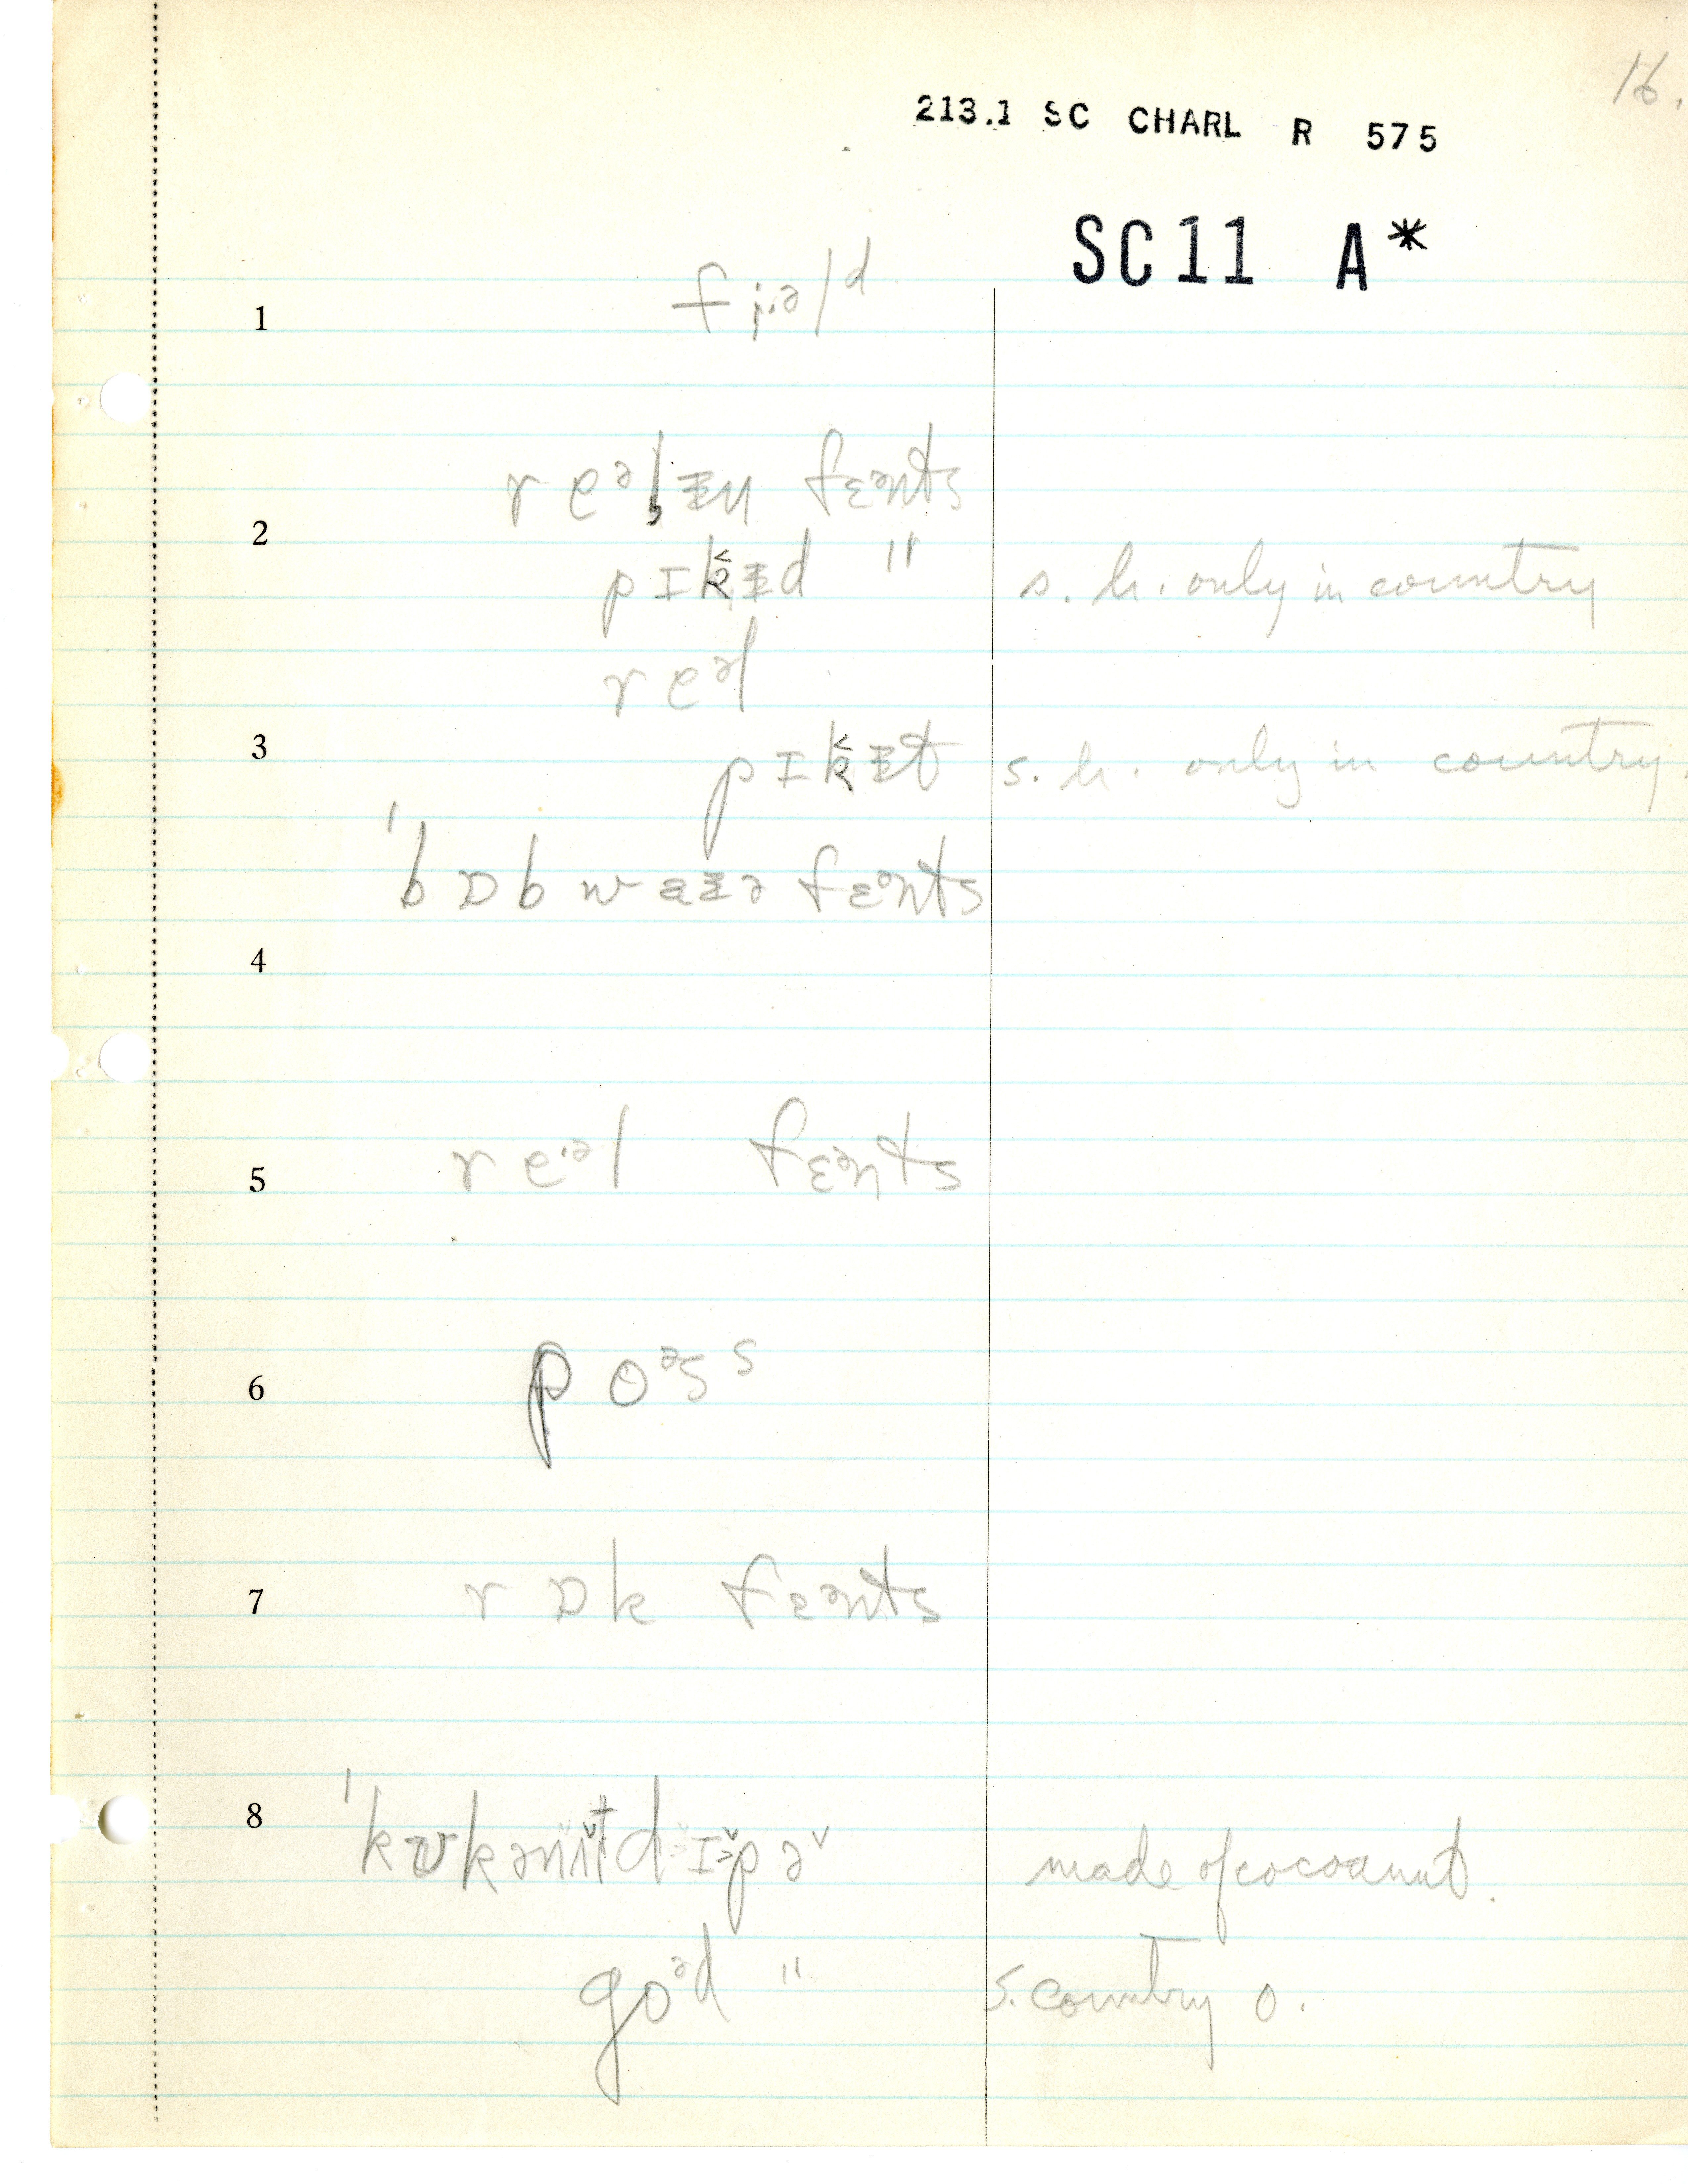 16.
213.1 SC CHARL R 575
SC11 A*
1 fi·əlᵈ
2 reᵊl̡ᵻn fɛᵊnts
pɪk̬ᵻd " s. h. only in country
reᵊl
3 pɪk̬ᵻt s. h. only in country.
'bɒbwaᵻə fɛᵊnts
4
5 re·ᵊl fɛᵊnts
6 poᵊsˢ
7 rɒk fɛᵊnts
8 'kʊkənʌt dɪpə made of cocoanut.
goᵊd " s. country o.